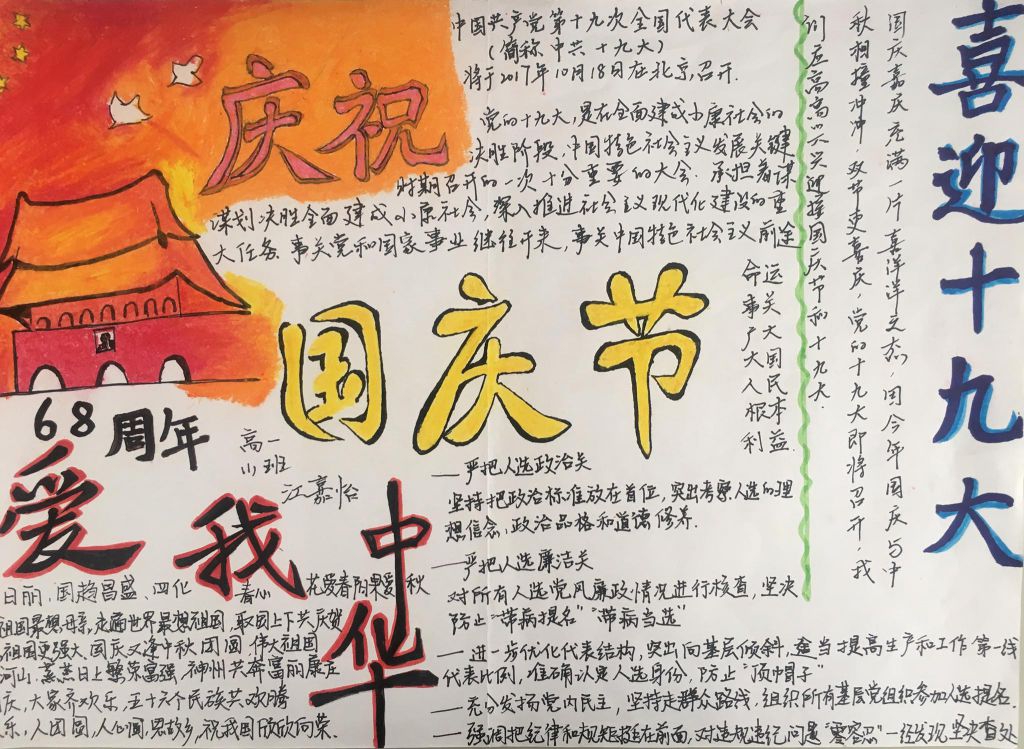 庆祝
中国共产党第十九次全国代表大会
(简称中共十九大)
将于2017年10月18日在北京召开.
党的十九大,是在全面建成小康社会的
决胜阶段,中国特色社会主义发展关键
时期召开的一次十分重要的大会.承担着谋
谋划决胜全面建成小康社会,深入推进社会主义现代化建设的重
大任务.事关党和国家事业继往开来,事关中国特色社会主义前途
命运
事关
广大
大国
人民
根本
利益
喜迎十九大
国庆嘉庆充满一片喜洋洋之态,因今年国庆与中
秋相撞冲冲,双节更喜庆,党的十九大即将召开,我
们应高高兴兴迎接国庆节和十九大.
国庆节
68周年
高一
小班
江嘉怡
爱我中华
日丽,国趋昌盛、四化 春心 花爱春雨果爱秋
祖国最想母亲,走遍世界最想祖国,
祖国更强大,国庆又逢中秋团圆,伟大祖国
河山,蒸蒸日上繁荣富强,神州共奔富丽康庄
庆,大家齐欢乐,五十六个民族共欢腾
乐,人团圆,人心圆,思故乡,祝我国欣欣向荣.
—严把人选政治关
坚持把政治标准放在首位,突出考察人选的理
想信念,政治品格和道德修养.
—严把人选廉洁关
对所有人选党风廉政情况进行核查,坚决
防止“带病提名”“带病当选”
—进一步优化代表结构,突出向基层倾斜,适当提高生产和工作第一线
代表比例,准确认定人选身份,防止“顶帽子”
—充分发扬党内民主,坚持走群众路线,组织所有基层党组织参加人选提名.
—强调把纪律和规矩挺在前面,对违规违纪问题“零容忍”一经发现坚决查处